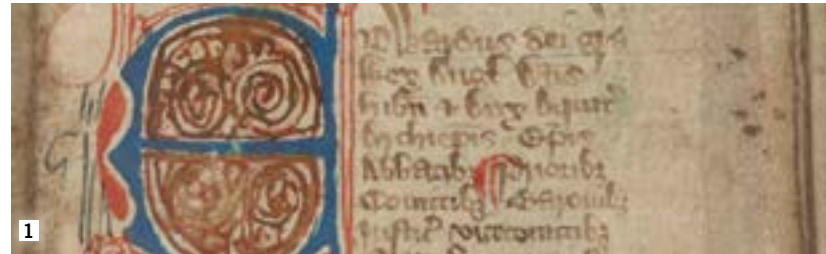 Edwardus dei gra
Rex Angl dns
hibn & dux Aquit
Archiepis Epis
Abbatibz Prioribz
Comitibz Baronibz
Justic vicecomitibz
1